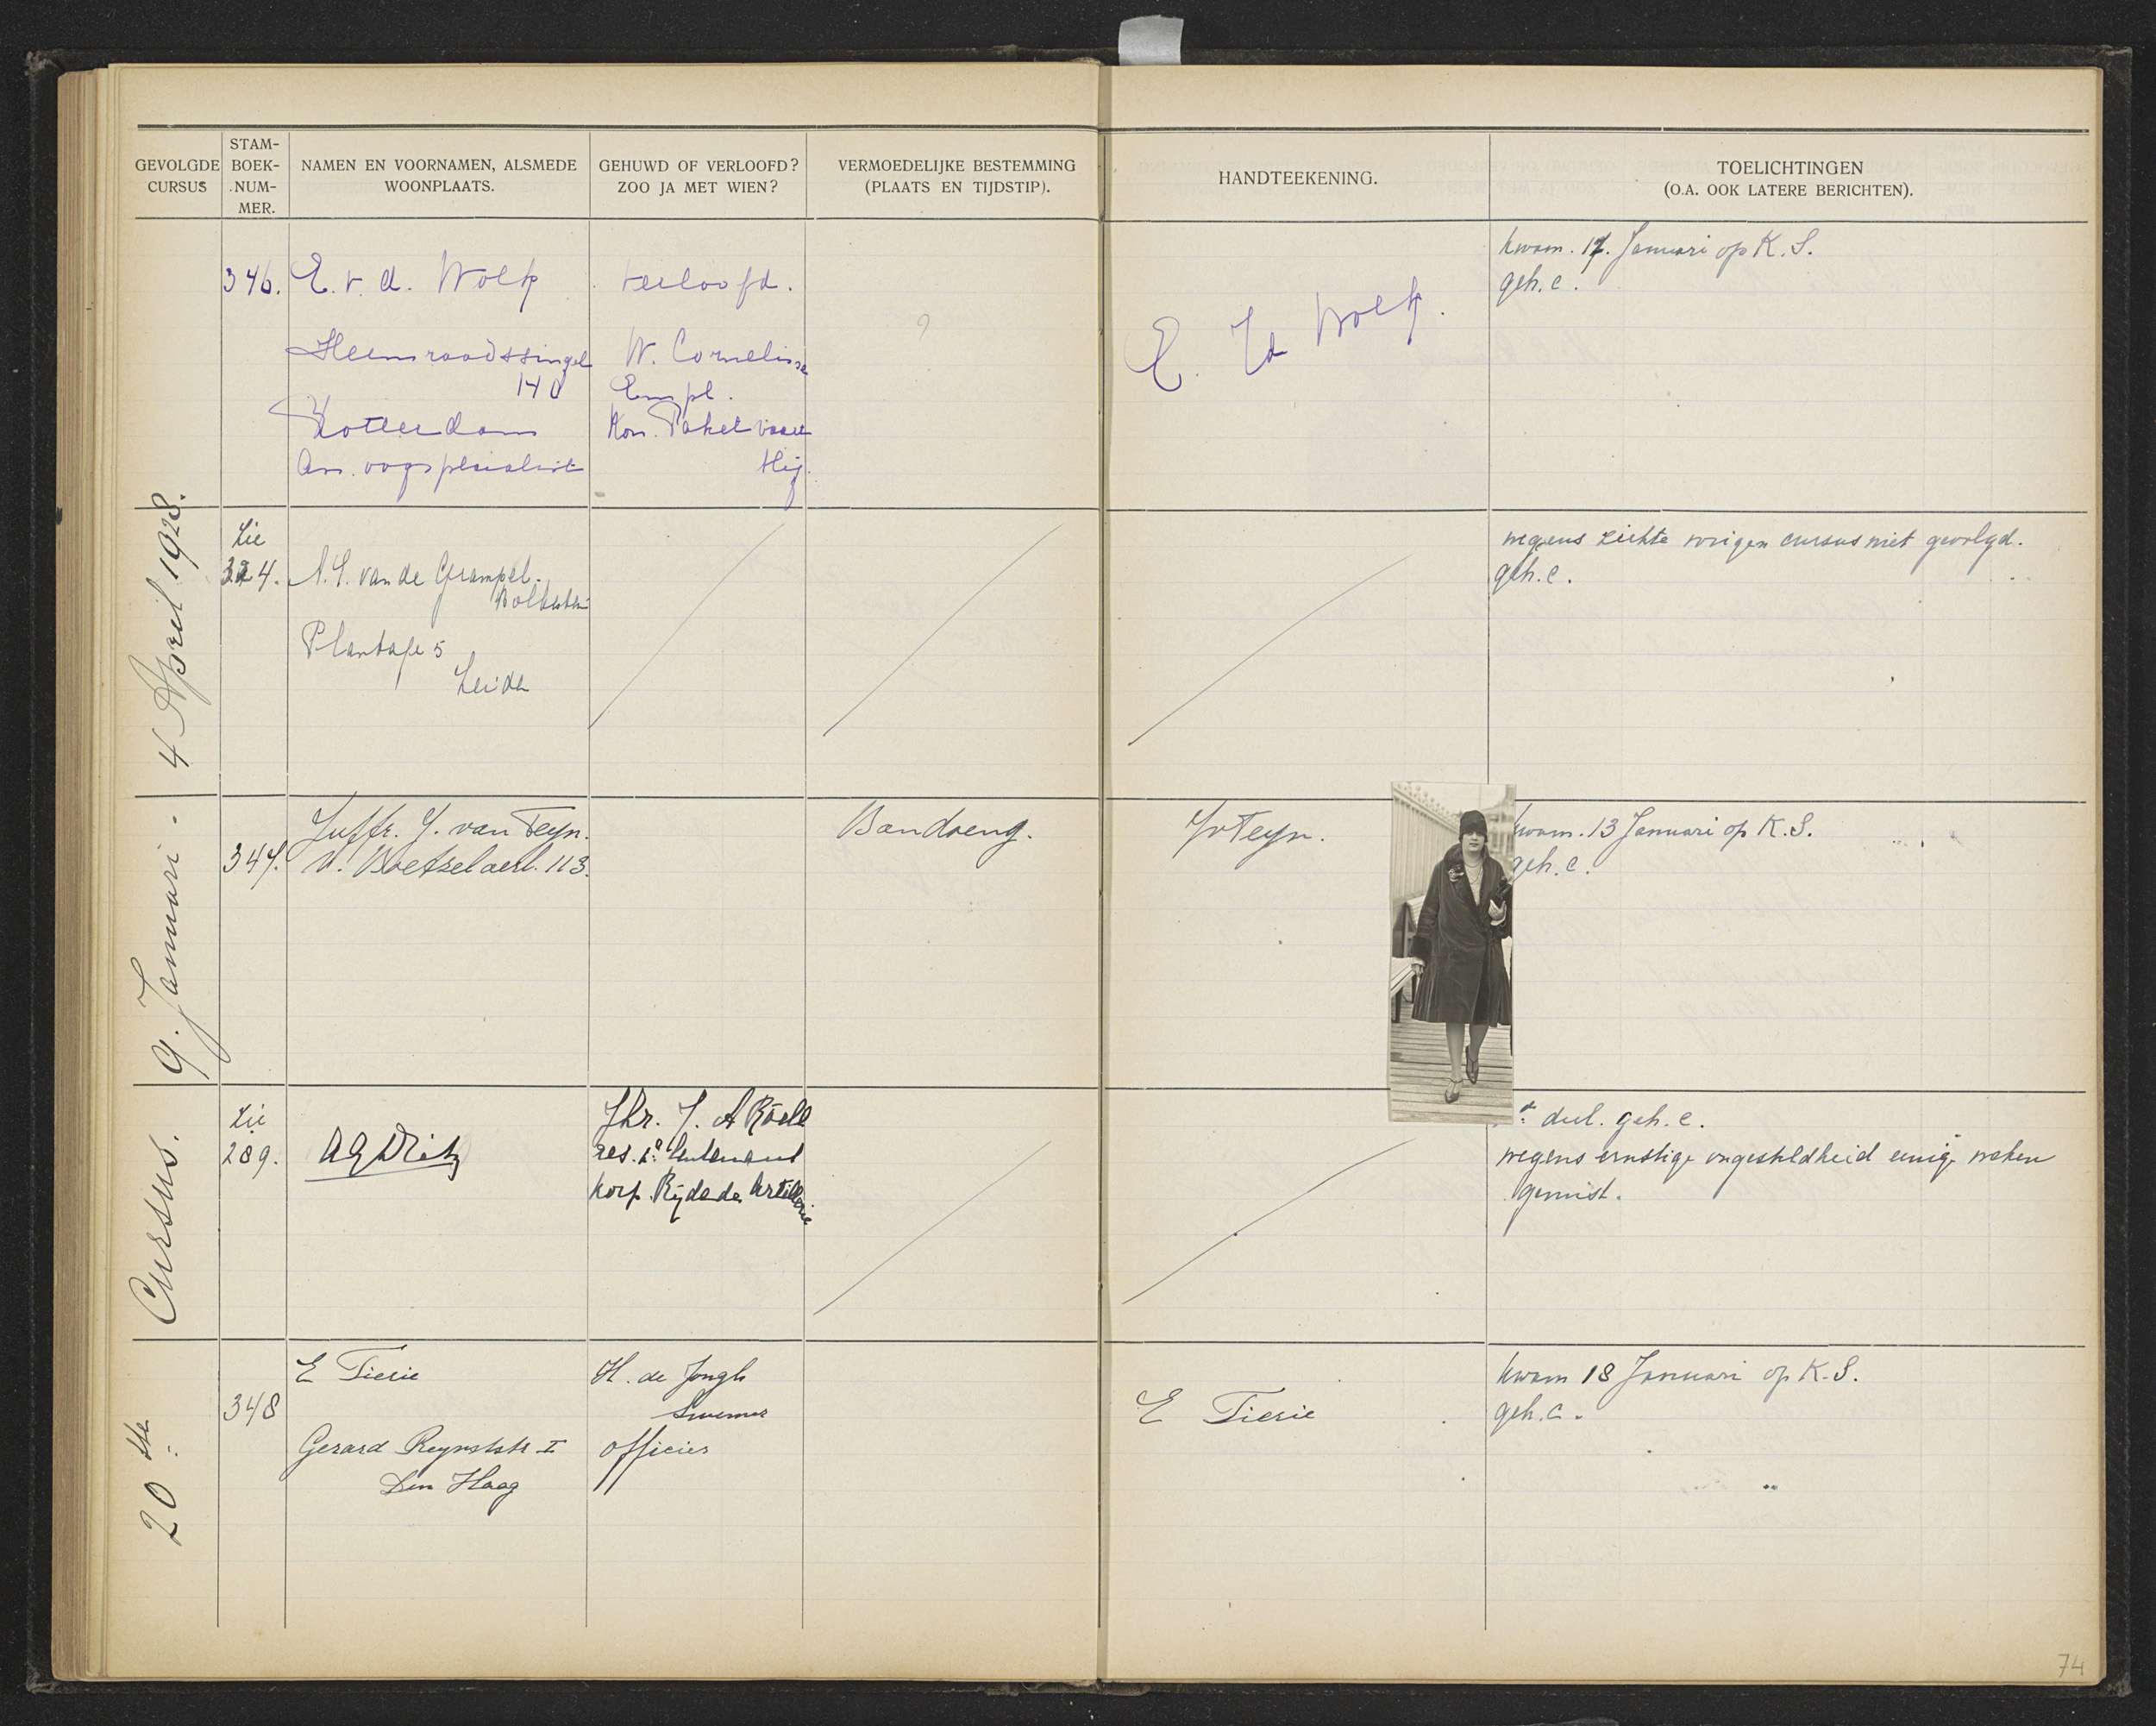 GEVOLGDE CURSUS
STAM-BOEK-NUM-MER.
NAMEN EN VOORNAMEN, ALSMEDE WOONPLAATS.
GEHUWD OF VERLOOFD? ZOO JA MET WIEN?
VERMOEDELIJKE BESTEMMING (PLAATS EN TIJDSTIP).
HANDTEEKENING.
TOELICHTINGEN (O.A. OOK LATERE BERICHTEN).
20ste Cursus. 9 Januari - 4 April 1928.
346.
E. v. d. Wolk
Heemraadssingel
140
Rotterdam
Ass. oogspecialist
verloofd.
W. Cornelisse
Empl.
Kon. Paketvaart
Mij.
?
E. v d Wolk.
kwam. 17. Januari op K. S.
geh. c.
Zie
324.
v. de Grampel.
Plantage 5
Leiden
wegens ziekte vorigen cursus niet gevolgd.
geh. c.
347.
Juffr. J. van Teyn.
v. Boetzelaerl. 113.
Bandoeng.
JvTeyn.
kwam. 13 Januari op K. S.
geh. c.
Zie
289.
Jhr. J. A Röell
res. 1e Luitenant
Korps Rijdende Artillerie
deel. geh. c.
wegens ernstige ongesteldheid eenige weken
gemist.
348
E Tierie
Gerard Reynststr I
Den Haag
H. de Jongh
Swemer
officier
E Tierie
kwam 18 Januari op K. S.
geh. c.
74